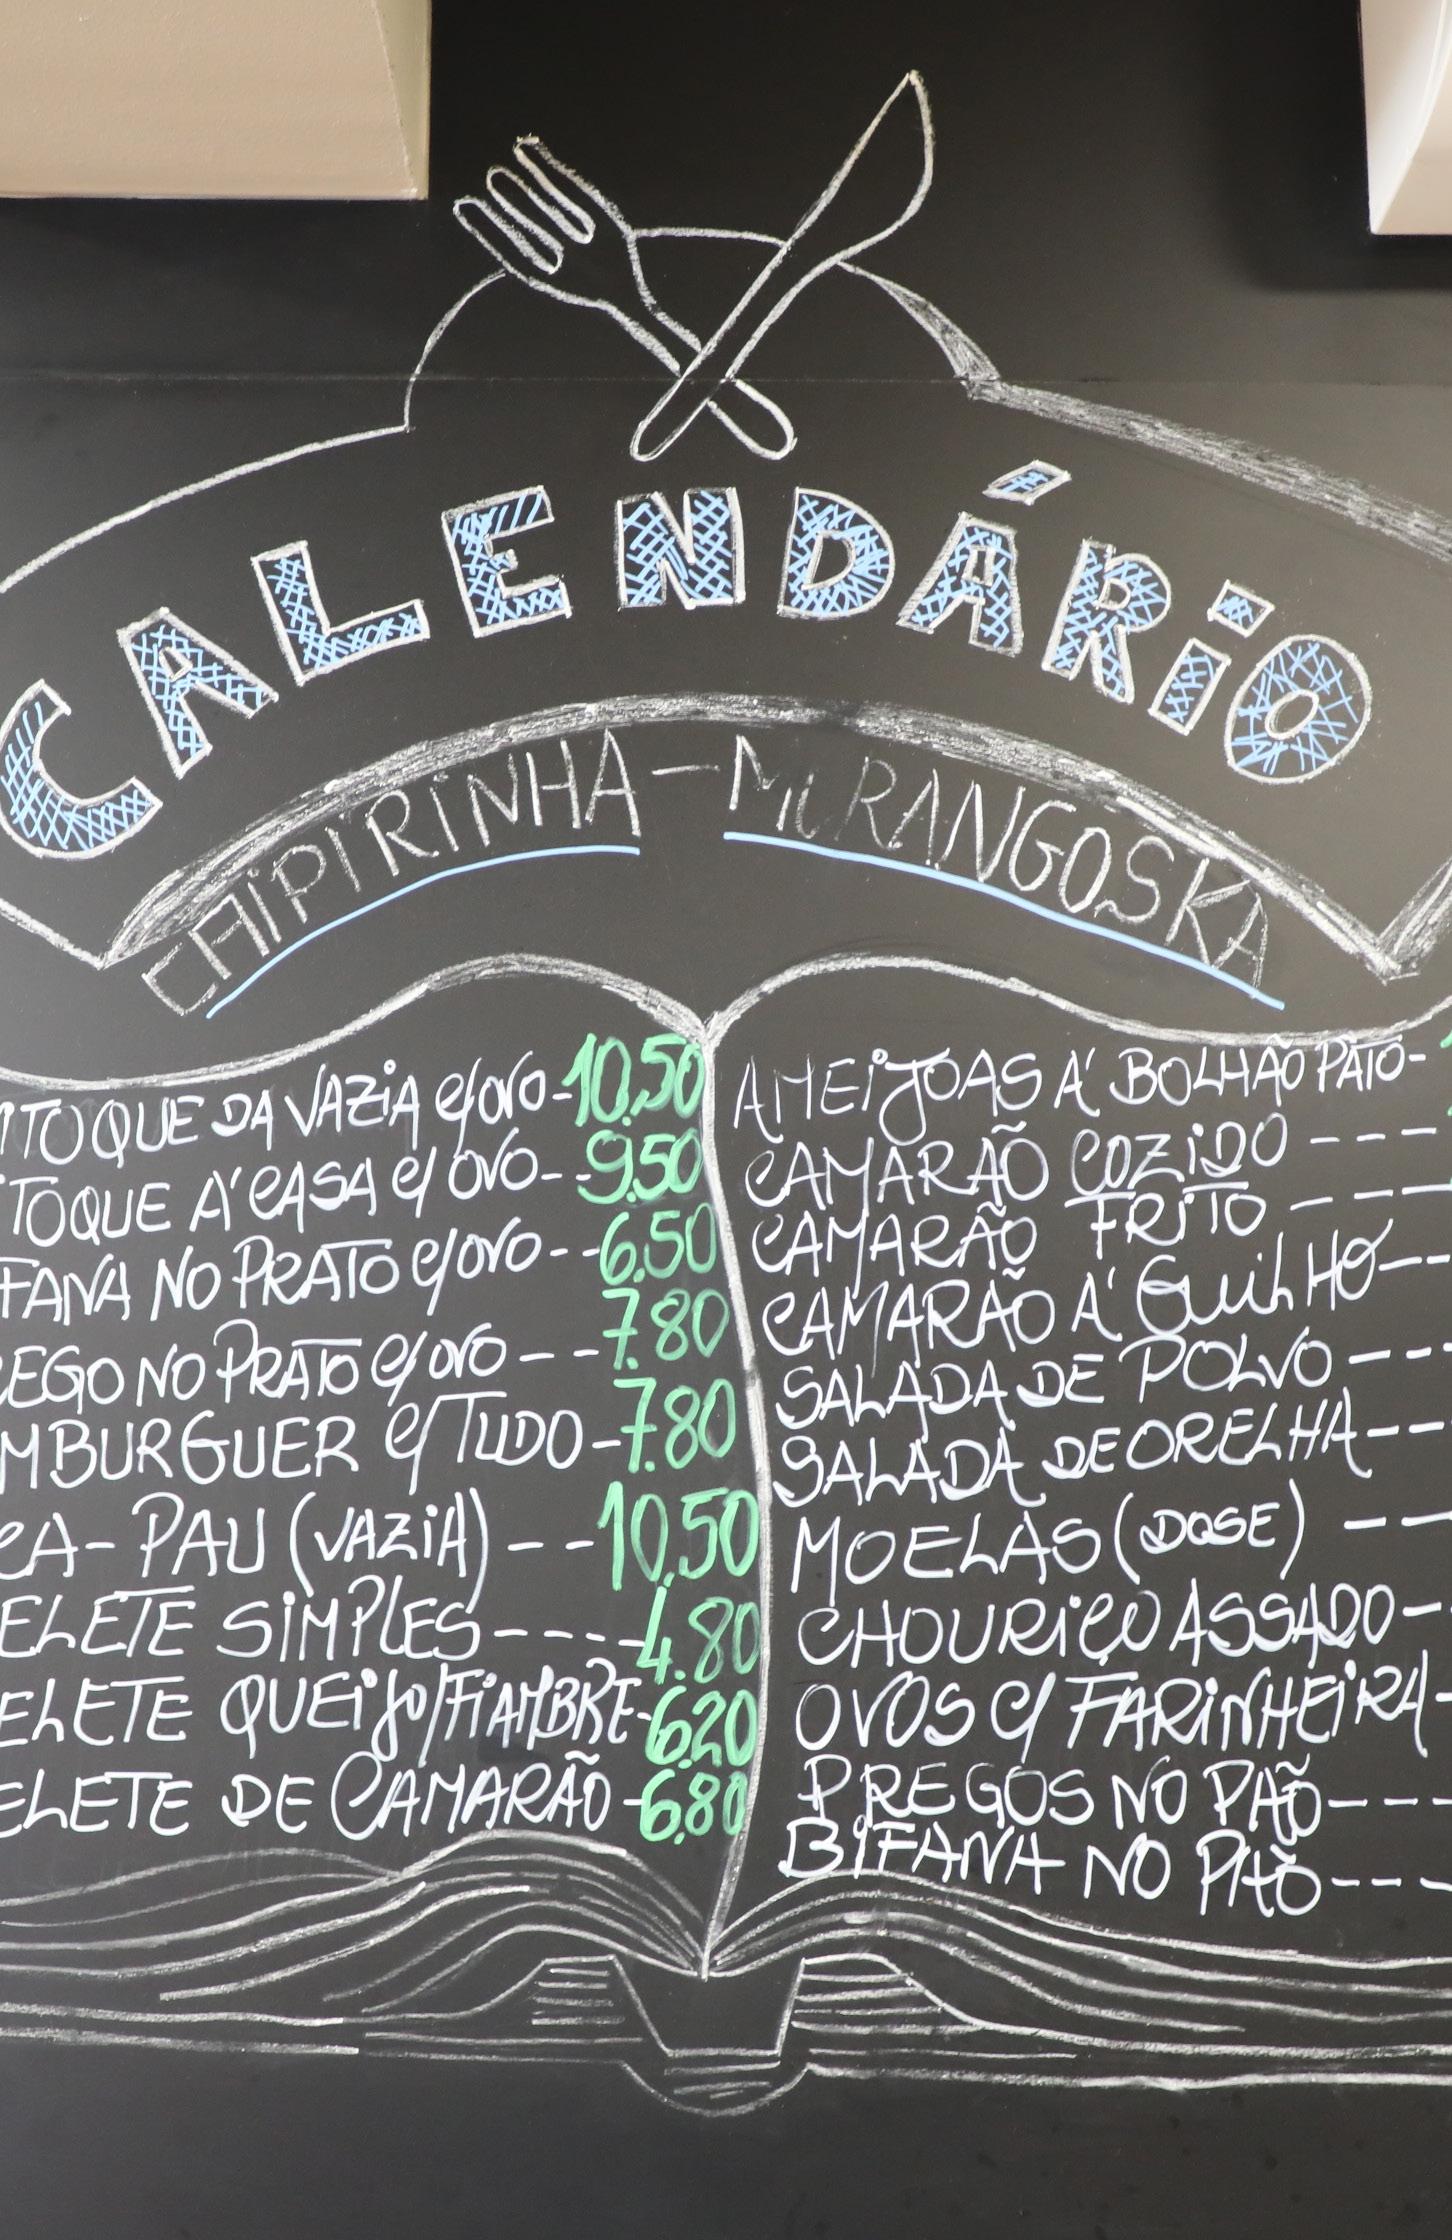 CALENDÁRIO
CAIPIRINHA - MORANGOSKA
ITOQUE DA VAZIA C/OVO - 10.50
TOQUE Á CASA C/ OVO - - 9.50
FANA NO PRATO C/OVO - - 6.50
EGO NO PRATO C/OVO - - - 7.80
MBURGUER C/ TUDO - 7.80
CA - PAU (VAZIA) - - - 10.50
ELETE SIMPLES - - - - 4.80
ELETE QUEIJO/FIAMBRE - 6.20
ELETE DE CAMARÃO - 6.80
AMEIJOAS Á BOLHÃO PATO -
CAMARÃO COZIDO - - - -
CAMARÃO FRITO - - -
CAMARÃO Á GUILHO - - -
SALADA DE POLVO - - -
SALADA DE ORELHA - - -
MOELAS (DOSE) - -
CHOURIÇO ASSADO - -
OVOS C/ FARINHEIRA -
PREGOS NO PÃO - - - -
BIFANA NO PÃO - - - -